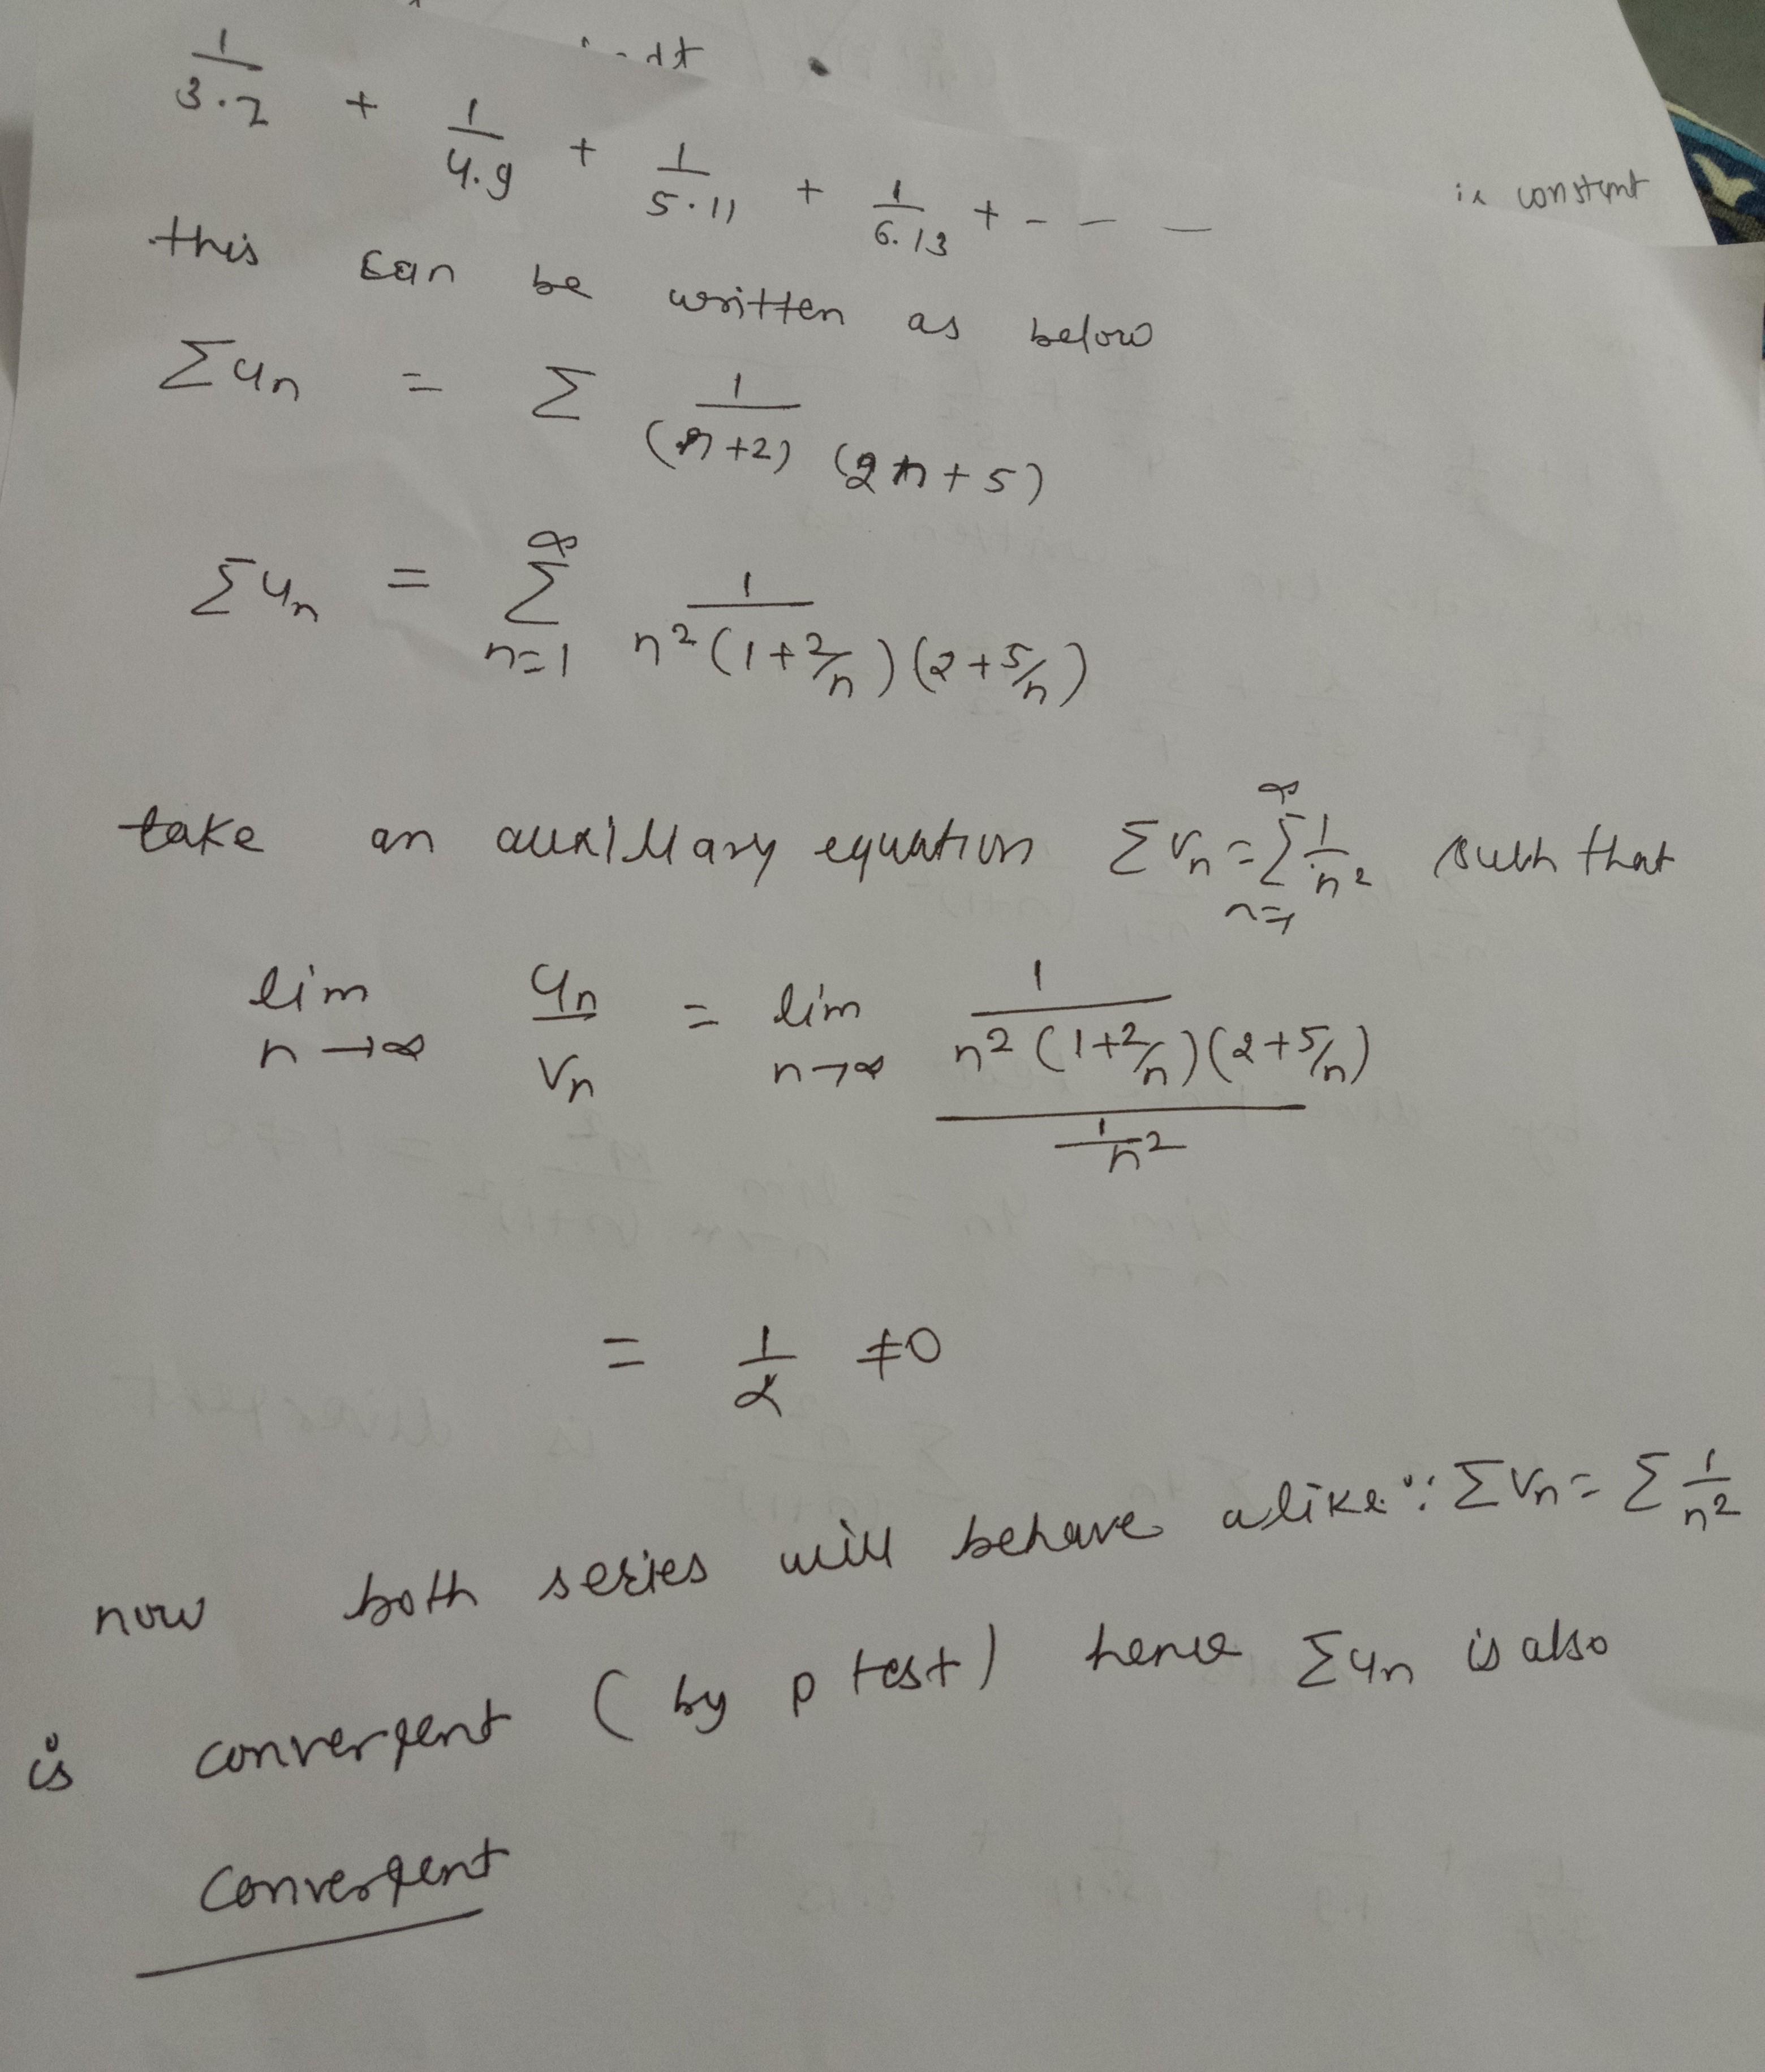 1/3.7 + 1/4.9 + 1/5.11 + 1/6.13 + - - -
is constant
this can be written as below
Σun = Σ 1/(n+2) (2n+5)
Σun = ∞Σn=1 1/n²(1+2/n)(2+5/n)
take an auxillary equation Σvn = ∞Σn=1 1/n² such that
lim n→∞ un/vn = lim n→∞ 1/n²(1+2/n)(2+5/n) / 1/n²
= 1/2 ≠0
now both series will behave alike ∵ Σvn = Σ 1/n²
is convergent (by p test) hence Σun is also
convergent